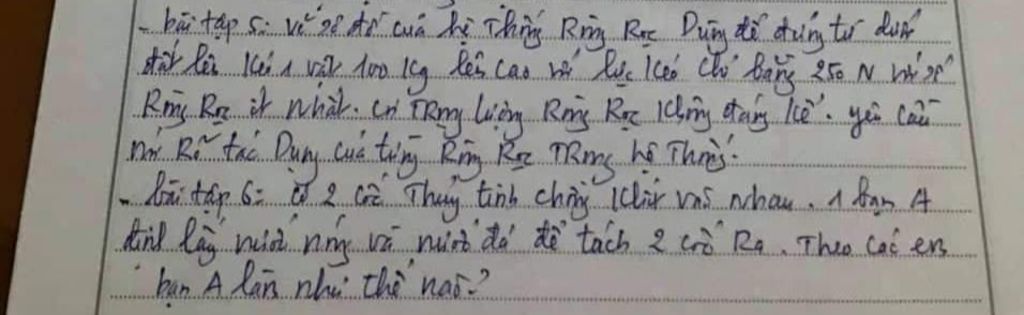 - bài tập 5: vẽ sơ đồ của hệ Thống Ròng Rọc Dùng để đứng từ dưới
đất lên Kéo 1 vật 100 Kg lên cao với lực Kéo chỉ bằng 250 N với số
Ròng Rọc ít nhất. có TRọng lượng Ròng Rọc Không đáng Kể. yêu cầu
nói Rõ tác Dụng của từng Ròng Rọc TRong hệ Thống.
- bài tập 6: có 2 cốc Thủy tinh chồng Khít vào nhau. 1 bạn A
định lấy nước nóng và nước đá để tách 2 cốc Ra. Theo các em
bạn A làm như thế nào?